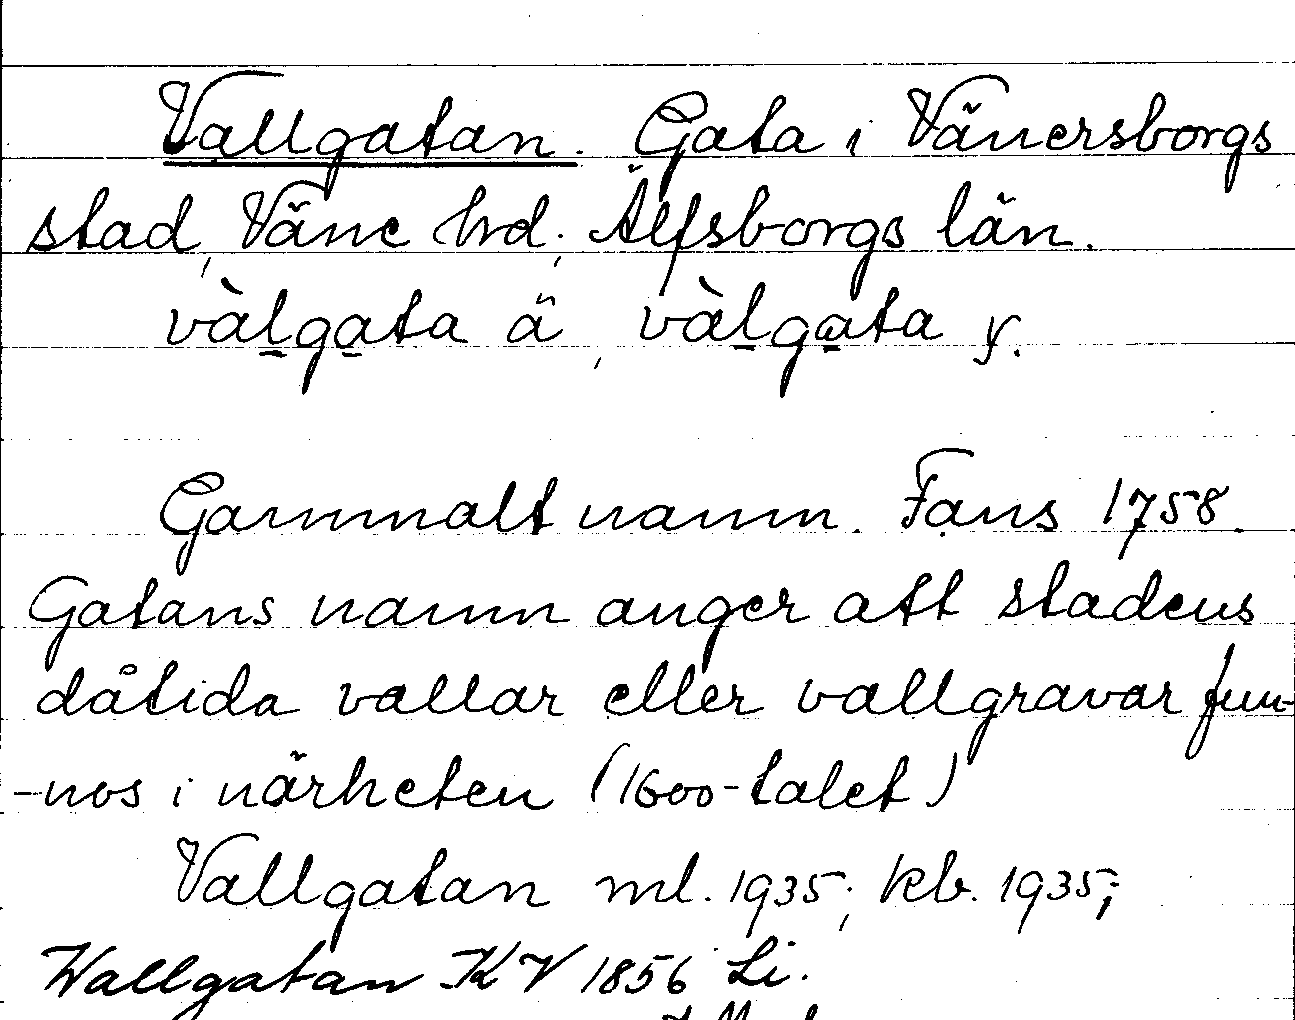 Vallgatan. Gata i Vänersborgs
stad, Väne hrd, Älfsborgs län.
vàlgata ä, vàlgata y.
Gammalt namn. Fans 1758.
Gatans namn anger att stadens
dåtida vallar eller vallgravar fun-
-nos i närheten (1600-talet)
Vallgatan ml. 1935; kb. 1935;
Wallgatan KV 1856 Li.